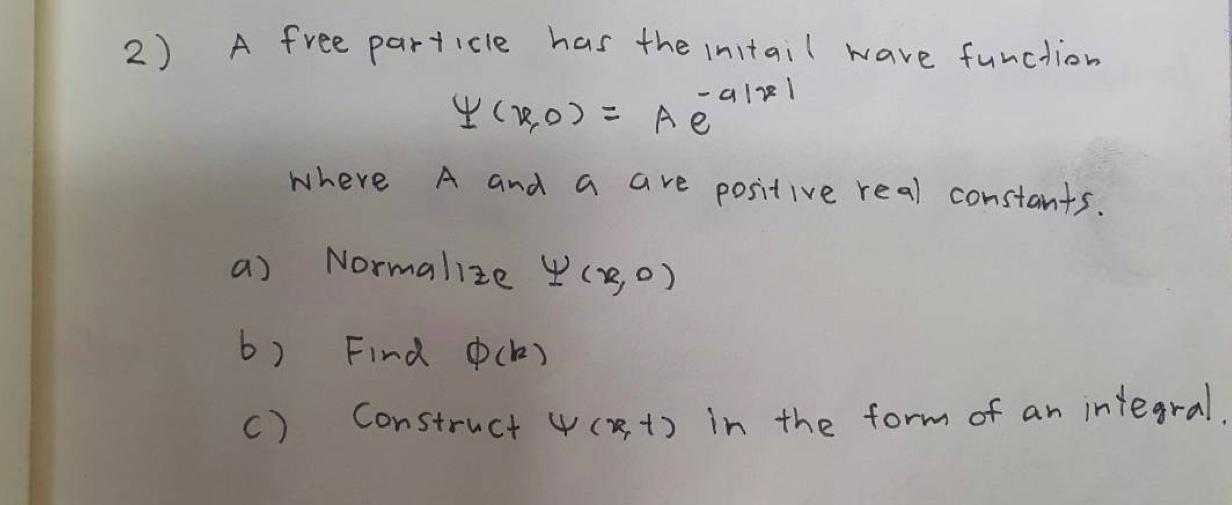 2) A free particle has the initail wave function
Ψ(x,0) = A e^{-a|x|}
where A and a are positive real constants.
a) Normalize Ψ(x,0)
b) Find Φ(k)
c) Construct Ψ(x,t) in the form of an integral.